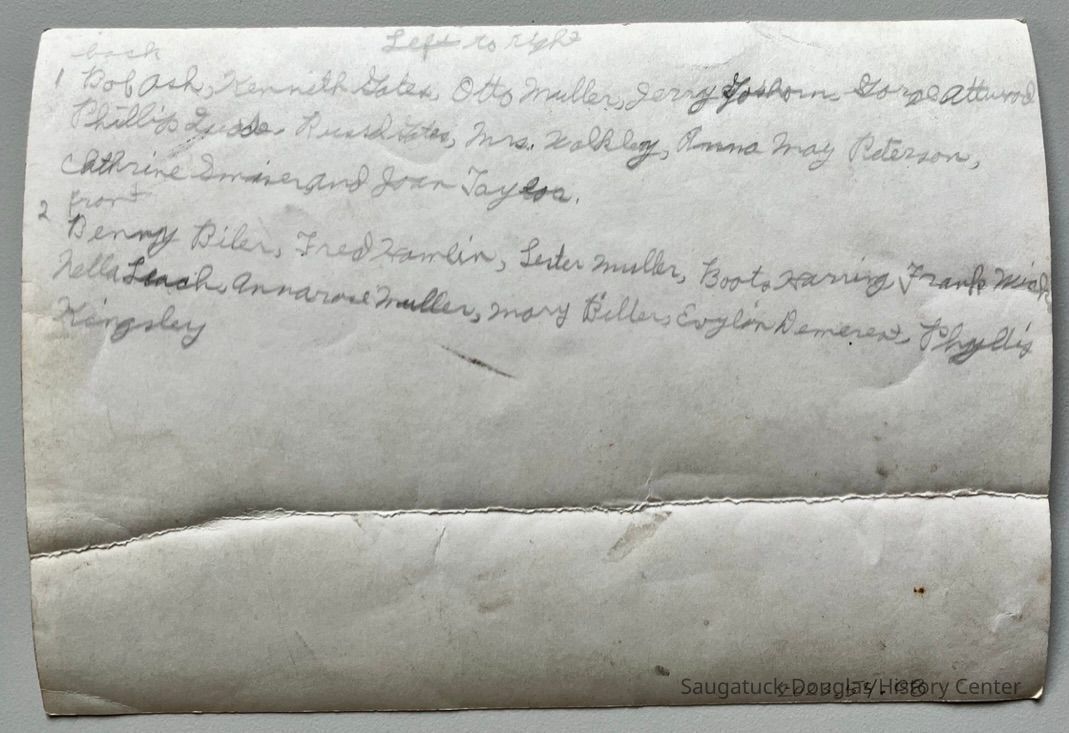 Left to right
back
1 Bob Ash, Kenneth Gates, Otto Muller, Jerry Goshorn, Gorge Attwood
Phillip Quade, Russel Gates, Mrs. Walkley, Anna May Peterson,
Cathrine and Joan Taylor.
front
2 Benny Biler, Fred Hamlin, Lester Muller, Boots Harring, Frank
Nella Leach, Annarose Muller, Mary Billers, Evylon Demerest, Phyllis
Kingsley
Saugatuck-Douglas History Center